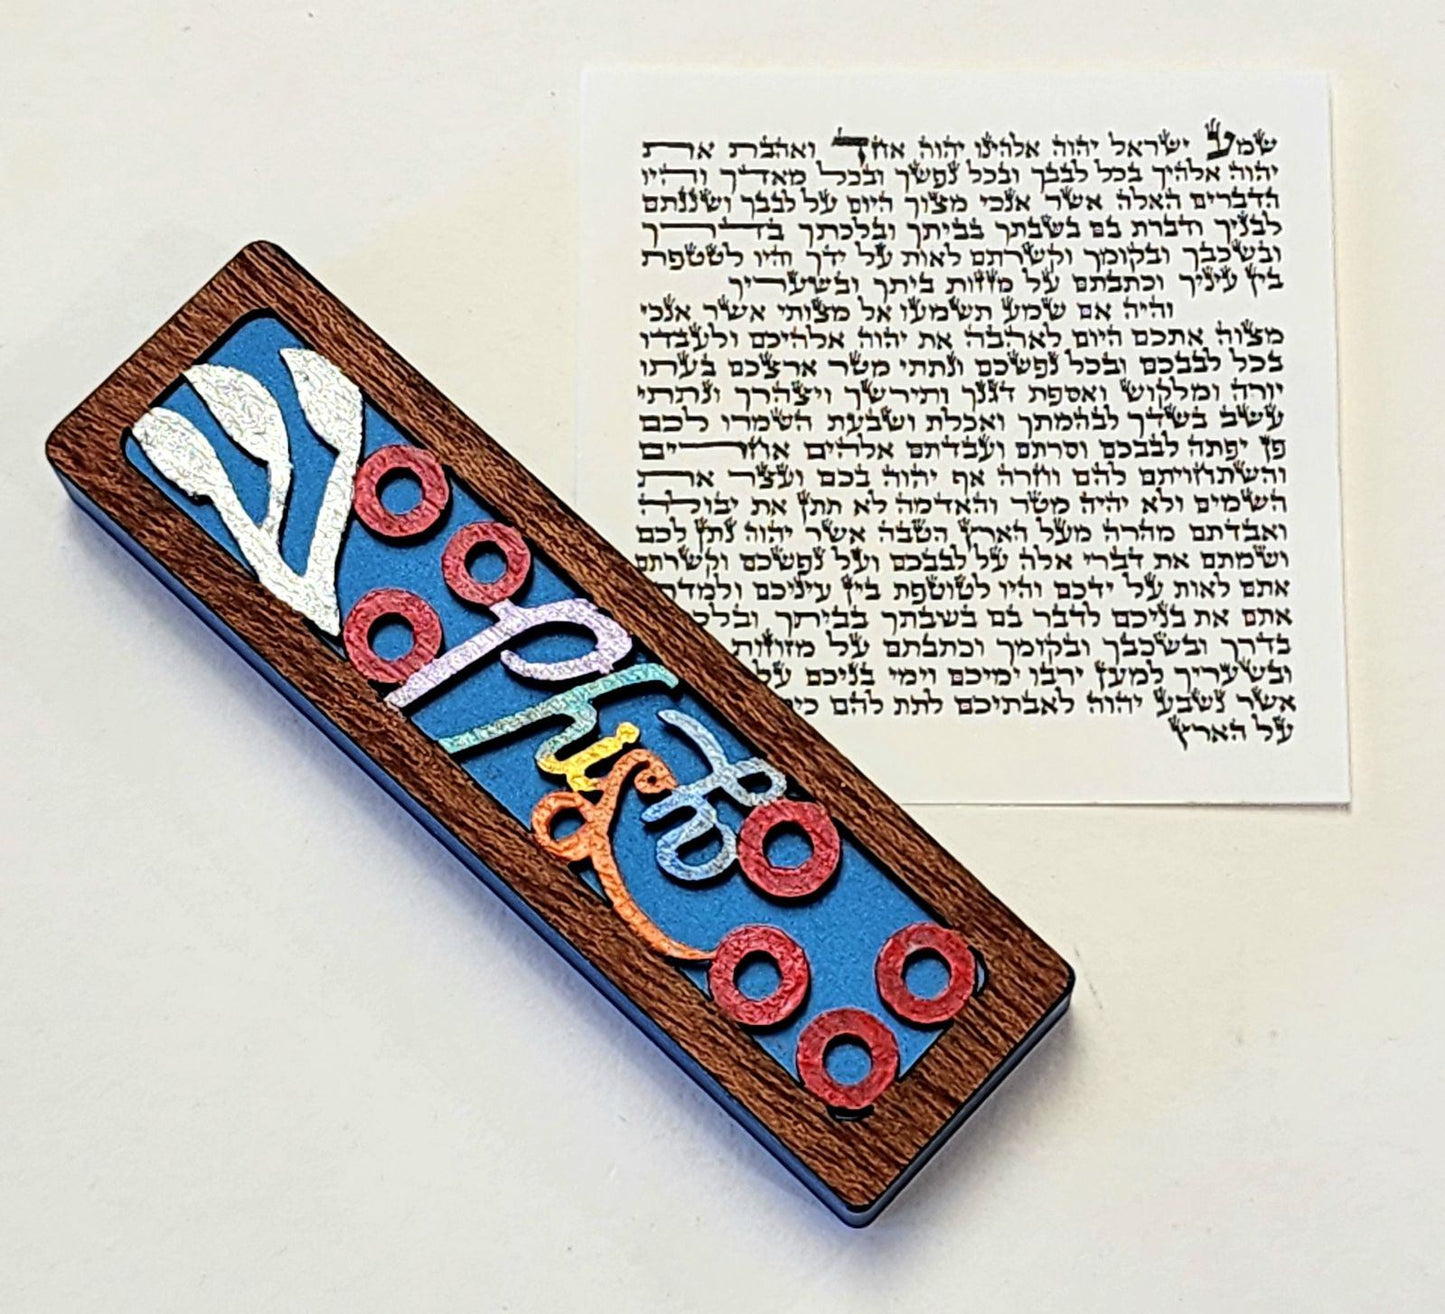 שמע ישראל יהוה אלהינו יהוה אחד ואהבת את
יהוה אלהיך בכל לבבך ובכל נפשך ובכל מאדך והיו
הדברים האלה אשר אנכי מצוך היום על לבבך ושננתם
לבניך ודברת בם בשבתך בביתך ובלכתך בדרך
ובשכבך ובקומך וקשרתם לאות על ידך והיו לטטפת
בין עיניך וכתבתם על מזזות ביתך ובשעריך
והיה אם שמע תשמעו אל מצותי אשר אנכי
מצוה אתכם היום לאהבה את יהוה אלהיכם ולעבדו
בכל לבבכם ובכל נפשכם ונתתי מטר ארצכם בעתו
יורה ומלקוש ואספת דגנך ותירשך ויצהרך ונתתי
עשב בשדך לבהמתך ואכלת ושבעת השמרו לכם
פן יפתה לבבכם וסרתם ועבדתם אלהים אחרים
והשתחויתם להם וחרה אף יהוה בכם ועצר את
השמים ולא יהיה מטר והאדמה לא תתן את יבולה
ואבדתם מהרה מעל הארץ הטבה אשר יהוה נתן לכם
ושמתם את דברי אלה על לבבכם ועל נפשכם וקשרתם
אתם לאות על ידכם והיו לטוטפת בין עיניכם
אתם את בניכם לדבר בם בשבתך בביתך
בדרך ובשכבך ובקומך וכתבתם על מזוזות
ובשעריך למען ירבו ימיכם וימי בניכם על
אשר נשבע יהוה לאבתיכם לתת להם
על הארץ
ש
Phish